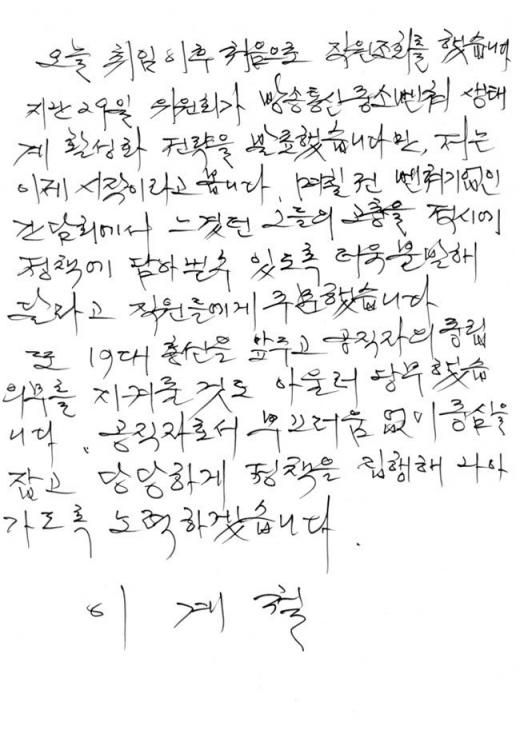 오늘 취임 이후 처음으로 직원조회를 했습니다
지난 29일 위원회가 방송통신 중소벤처 생태
계 활성화 전략을 발표했습니다만, 저는
이제 시작이라고 봅니다. 며칠 전 벤처기업인
간담회에서 느꼈던 그들의 고충을 적시에
정책에 담아낼 수 있도록 더욱 분발해
달라고 직원들에게 주문했습니다
또 19대 총선을 앞두고 공직자의 중립
의무를 지켜줄 것도 아울러 당부했습
니다. 공직자로서 부끄러움 없이 중심을
잡고 당당하게 정책을 집행해 나아
가도록 노력하겠습니다.
이 계 철